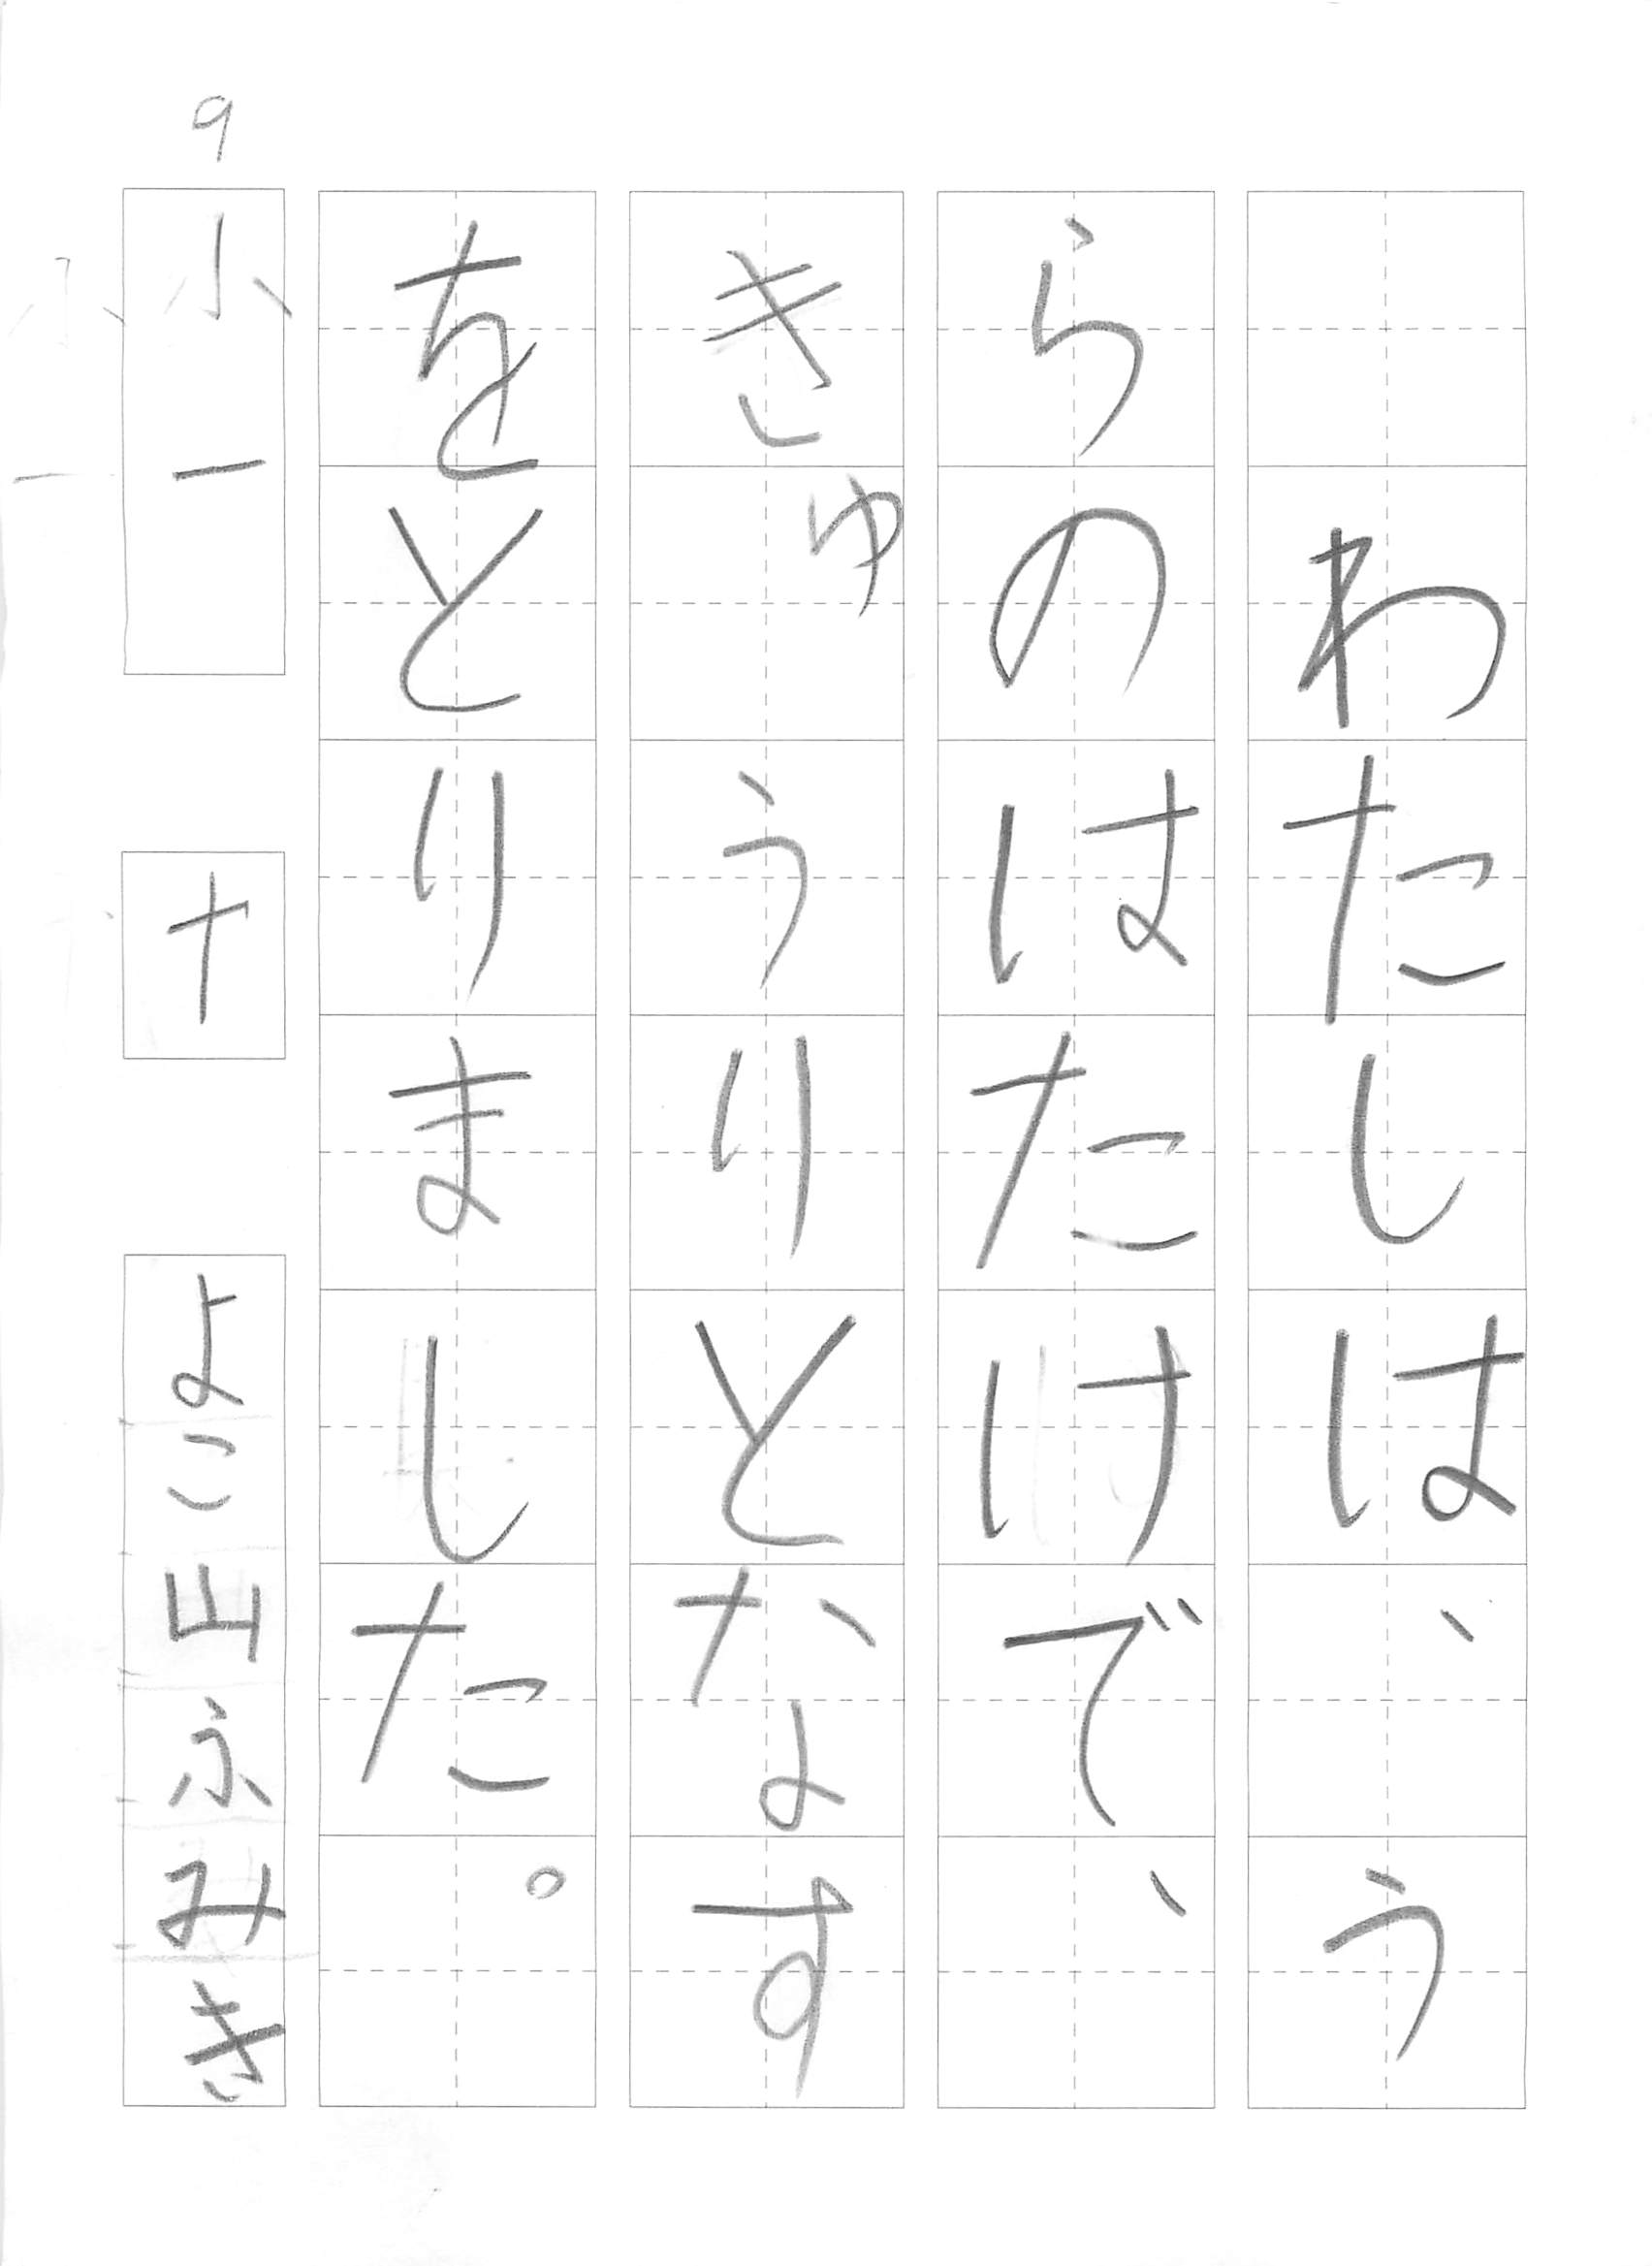 わたしは、う
らのはたけで、
きゅうりとなす
をとりました。
9
小一
十
よこ山ふみき